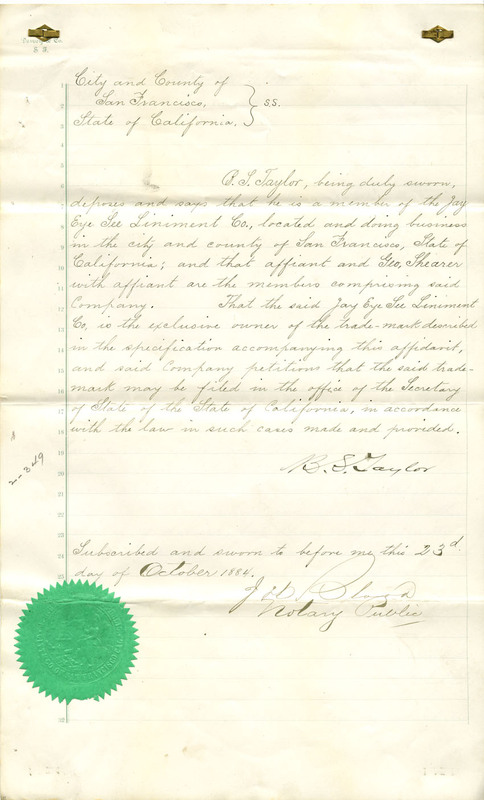 S. F.
City and County of
San Francisco, } S.S.
State of California.
B. S. Taylor, being duly sworn,
deposes and says that he is a member of the Jay
Eye See Liniment Co., located and doing business
in the city and county of San Francisco, State of
California; and that affiant and Geo, Shearer
with affiant are the members comprising said
Company. That the said Jay Eye See Liniment
Co, is the exclusive owner of the trade-mark described
in the specification accompanying this affidavit,
and said Company petitions that the said trade-
mark may be filed in the office of the Secretary
of State of the State of California, in accordance
with the law in such cases made and provided.
B. S. Taylor
2-349
Subscribed and sworn to before me this 23d
day of October 1884.
Notary Public